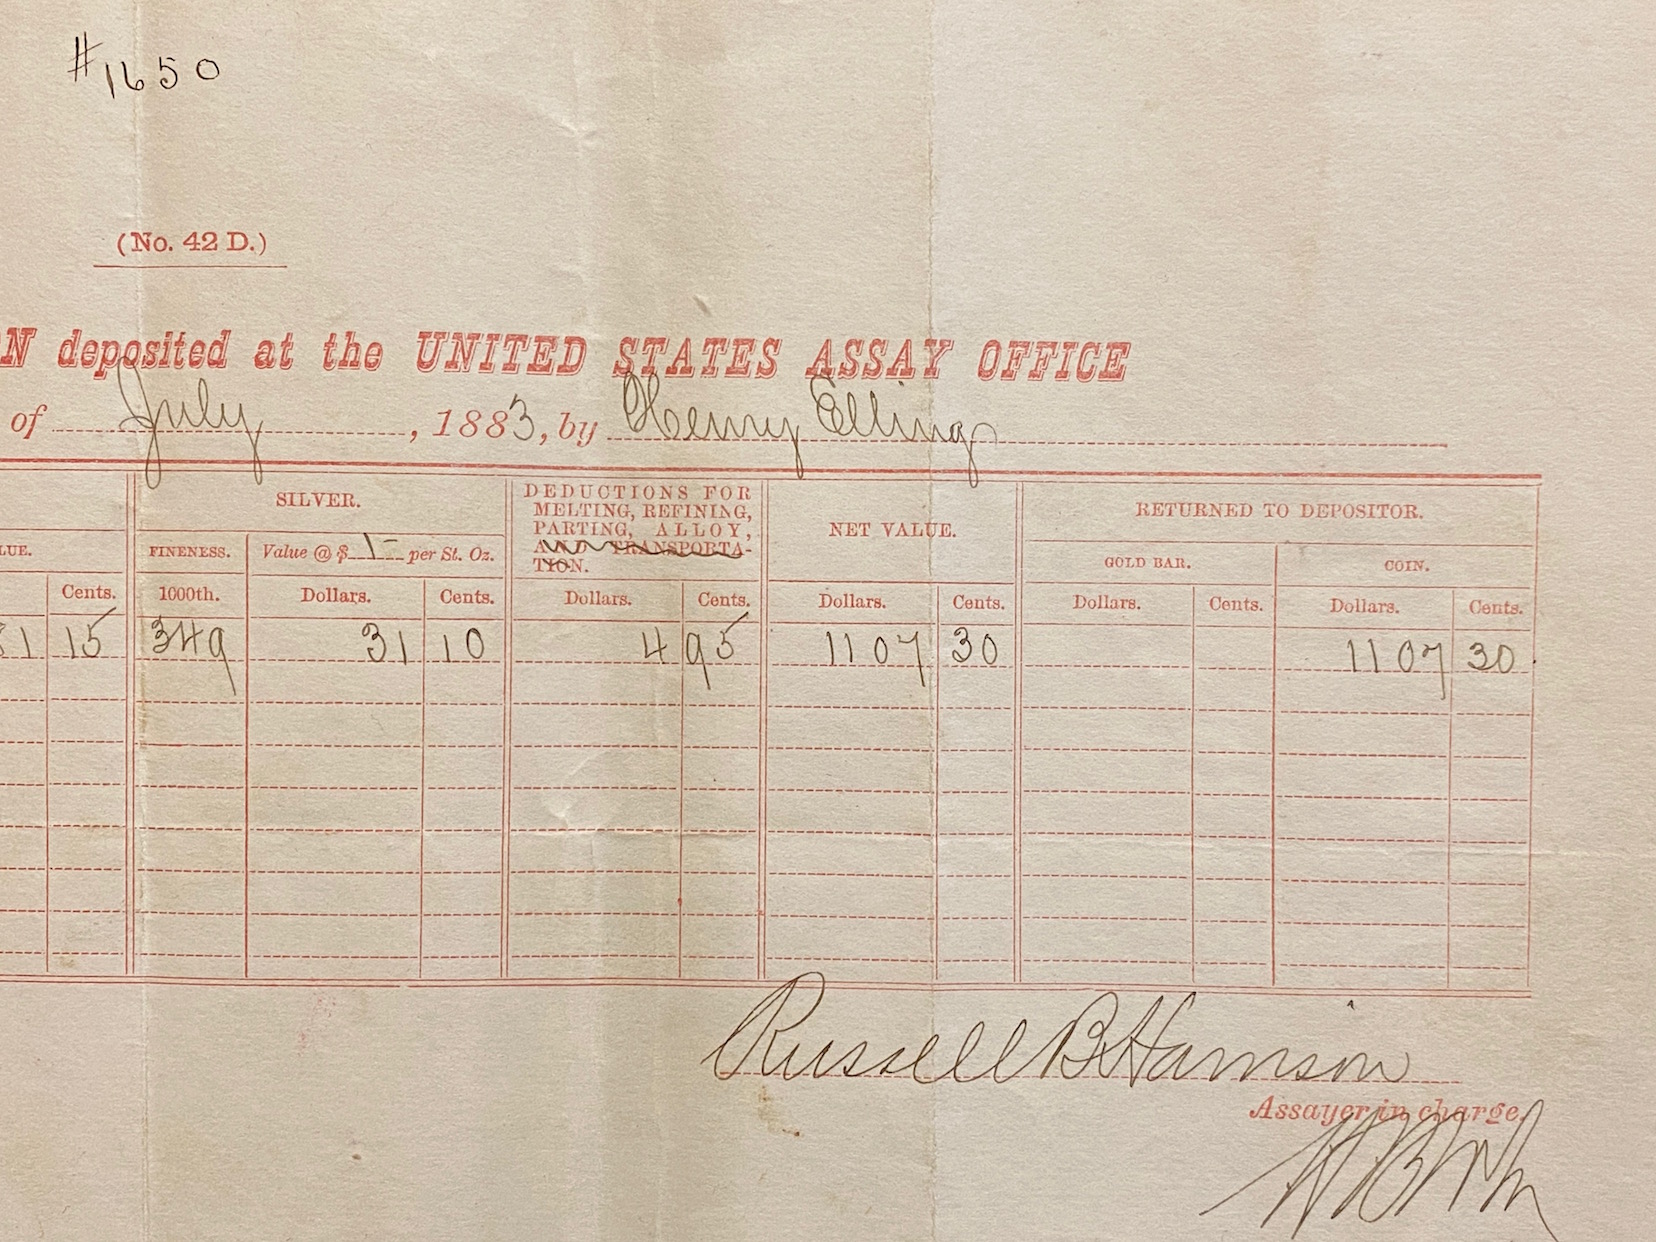 #1650
(No. 42 D.)
N deposited at the UNITED STATES ASSAY OFFICE
of July, 1883, by Henry Elling
SILVER.
DEDUCTIONS FOR
MELTING, REFINING,
PARTING, ALLOY,
AND TRANSPORTA-
TION.
NET VALUE.
RETURNED TO DEPOSITOR.
LUE. FINENESS. Value @ $ 1- per St. Oz. GOLD BAR. COIN.
Cents. 1000th. Dollars. Cents. Dollars. Cents. Dollars. Cents. Dollars. Cents. Dollars. Cents.
1 15 349 31 10 4 95 1107 30 1107 30
Russell B Harrison
Assayer in charge.